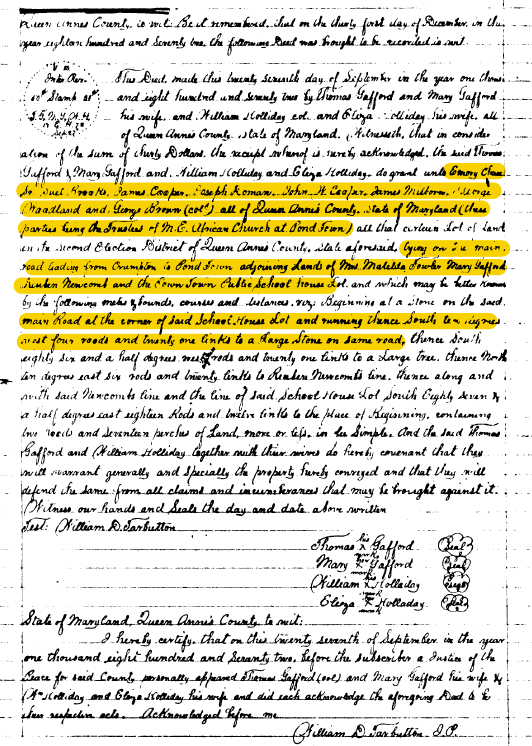 Queen Annes County, to wit: Be it remembered, that on the thirty first day of December, in the
year eighteen hundred and seventy two, the following Deed was brought to be recorded to wit.
Int. Rev.
Stamp
This Deed made this twenty seventh day of September in the year one thous
and eight hundred and seventy two by Thomas Gafford and Mary Gafford
his wife, and William Holliday col. and Eliza Holliday his wife, all
of Queen Anne's County, State of Maryland, Witnesseth, that in consider
ation of the sum of thirty Dollars, the receipt whereof is hereby acknowledged, the said Thomas
Gafford & Mary Gafford and William Holliday and Eliza Holliday, do grant unto Emory
Brooks, James Cooper, Joseph Roman, John H. Cooper, James George
Woodland and George Brown (col) all of Queen Anne's County, State of Maryland (these
parties being the Trustees of M.E. African Church at Pond Town) all that certain Lot of Land
in the Second Election District of Queen Anne's County, State aforesaid, lying on the main
road leading from Crumpton to Pond Town adjoining Lands of Mrs. Matilda Fowler Mary Gafford
Reuben Newcomb and the Town Public School house Lot, and which may be better known
by the following metes & bounds, courses and distances, viz: Beginning at a Stone on the said
main Road at the corner of said School House Lot and running thence South ten degrees
west four roods and twenty one links to a Large Stone on same road, thence South
eighty six and a half degrees west rods and twenty one links to a Large tree, thence North
ten degrees east six rods and twenty links to Reuben Newcombs line, thence along and
with said Newcombs line and the line of said School House Lot South Eighty seven &
a half degrees east eighteen Rods and twelve links to the place of Beginning, containing
two roods and seventeen perches of Land, more or less, in fee Simple. And the said Thomas
Gafford and William Holliday together with their wives do hereby covenant that they
will warrant generally and specially the property hereby conveyed and that they will
defend the same from all claims and incumberances that may be brought against it.
Witness our hands and Seals the day and date above written
Test: William D. Tarbutton
Thomas his X mark Gafford (Seal)
Mary her X mark Gafford (Seal)
William his X mark Holladay (Seal)
Eliza her X mark Holladay (Seal)
State of Maryland, Queen Anne's County, to wit:
I hereby certify, that on this twenty seventh of September in the year
one thousand eight hundred and Seventy two, before the subscriber a Justice of the
Peace for said County personally appeared Thomas Gafford (col) and Mary Gafford his wife &
Wm Holliday and Eliza Holliday his wife and did each acknowledge the aforegoing Deed to be
their respective acts. Acknowledged before me
William D. Tarbutton J.P.